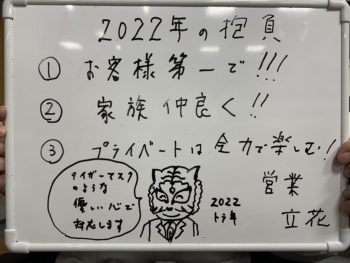 2022年の抱負
① お客様第一で!!!
② 家族仲良く!!
③ プライベートは全力で楽しむ!
タイガーマスク
のような
優しい心で
対応します
2022
トラ年
営業
立花